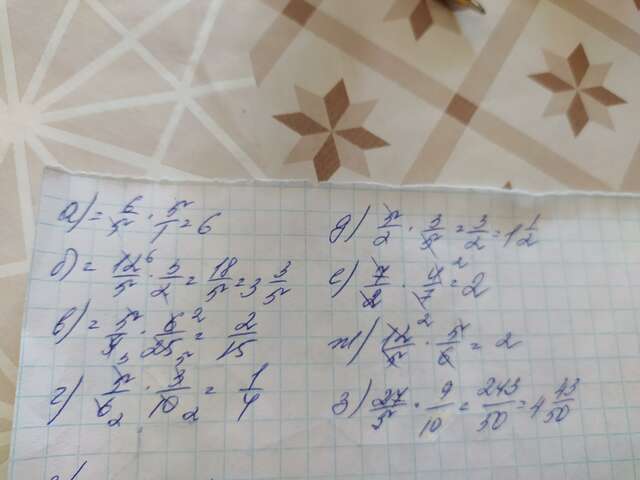 а) = 6/5 · 5/1 = 6
б) = 12/5 6 · 3/2 = 18/5 = 3 3/5
в) = 5/9 3 · 6/25 2 5 = 2/15
г) 5/6 2 · 3/10 2 = 1/4
д) 5/2 · 3/5 = 3/2 = 1 1/2
е) 7/2 · 4/7 2 = 2
ж) 12/5 2 · 5/6 = 2
з) 27/5 · 9/10 = 243/50 = 4 43/50